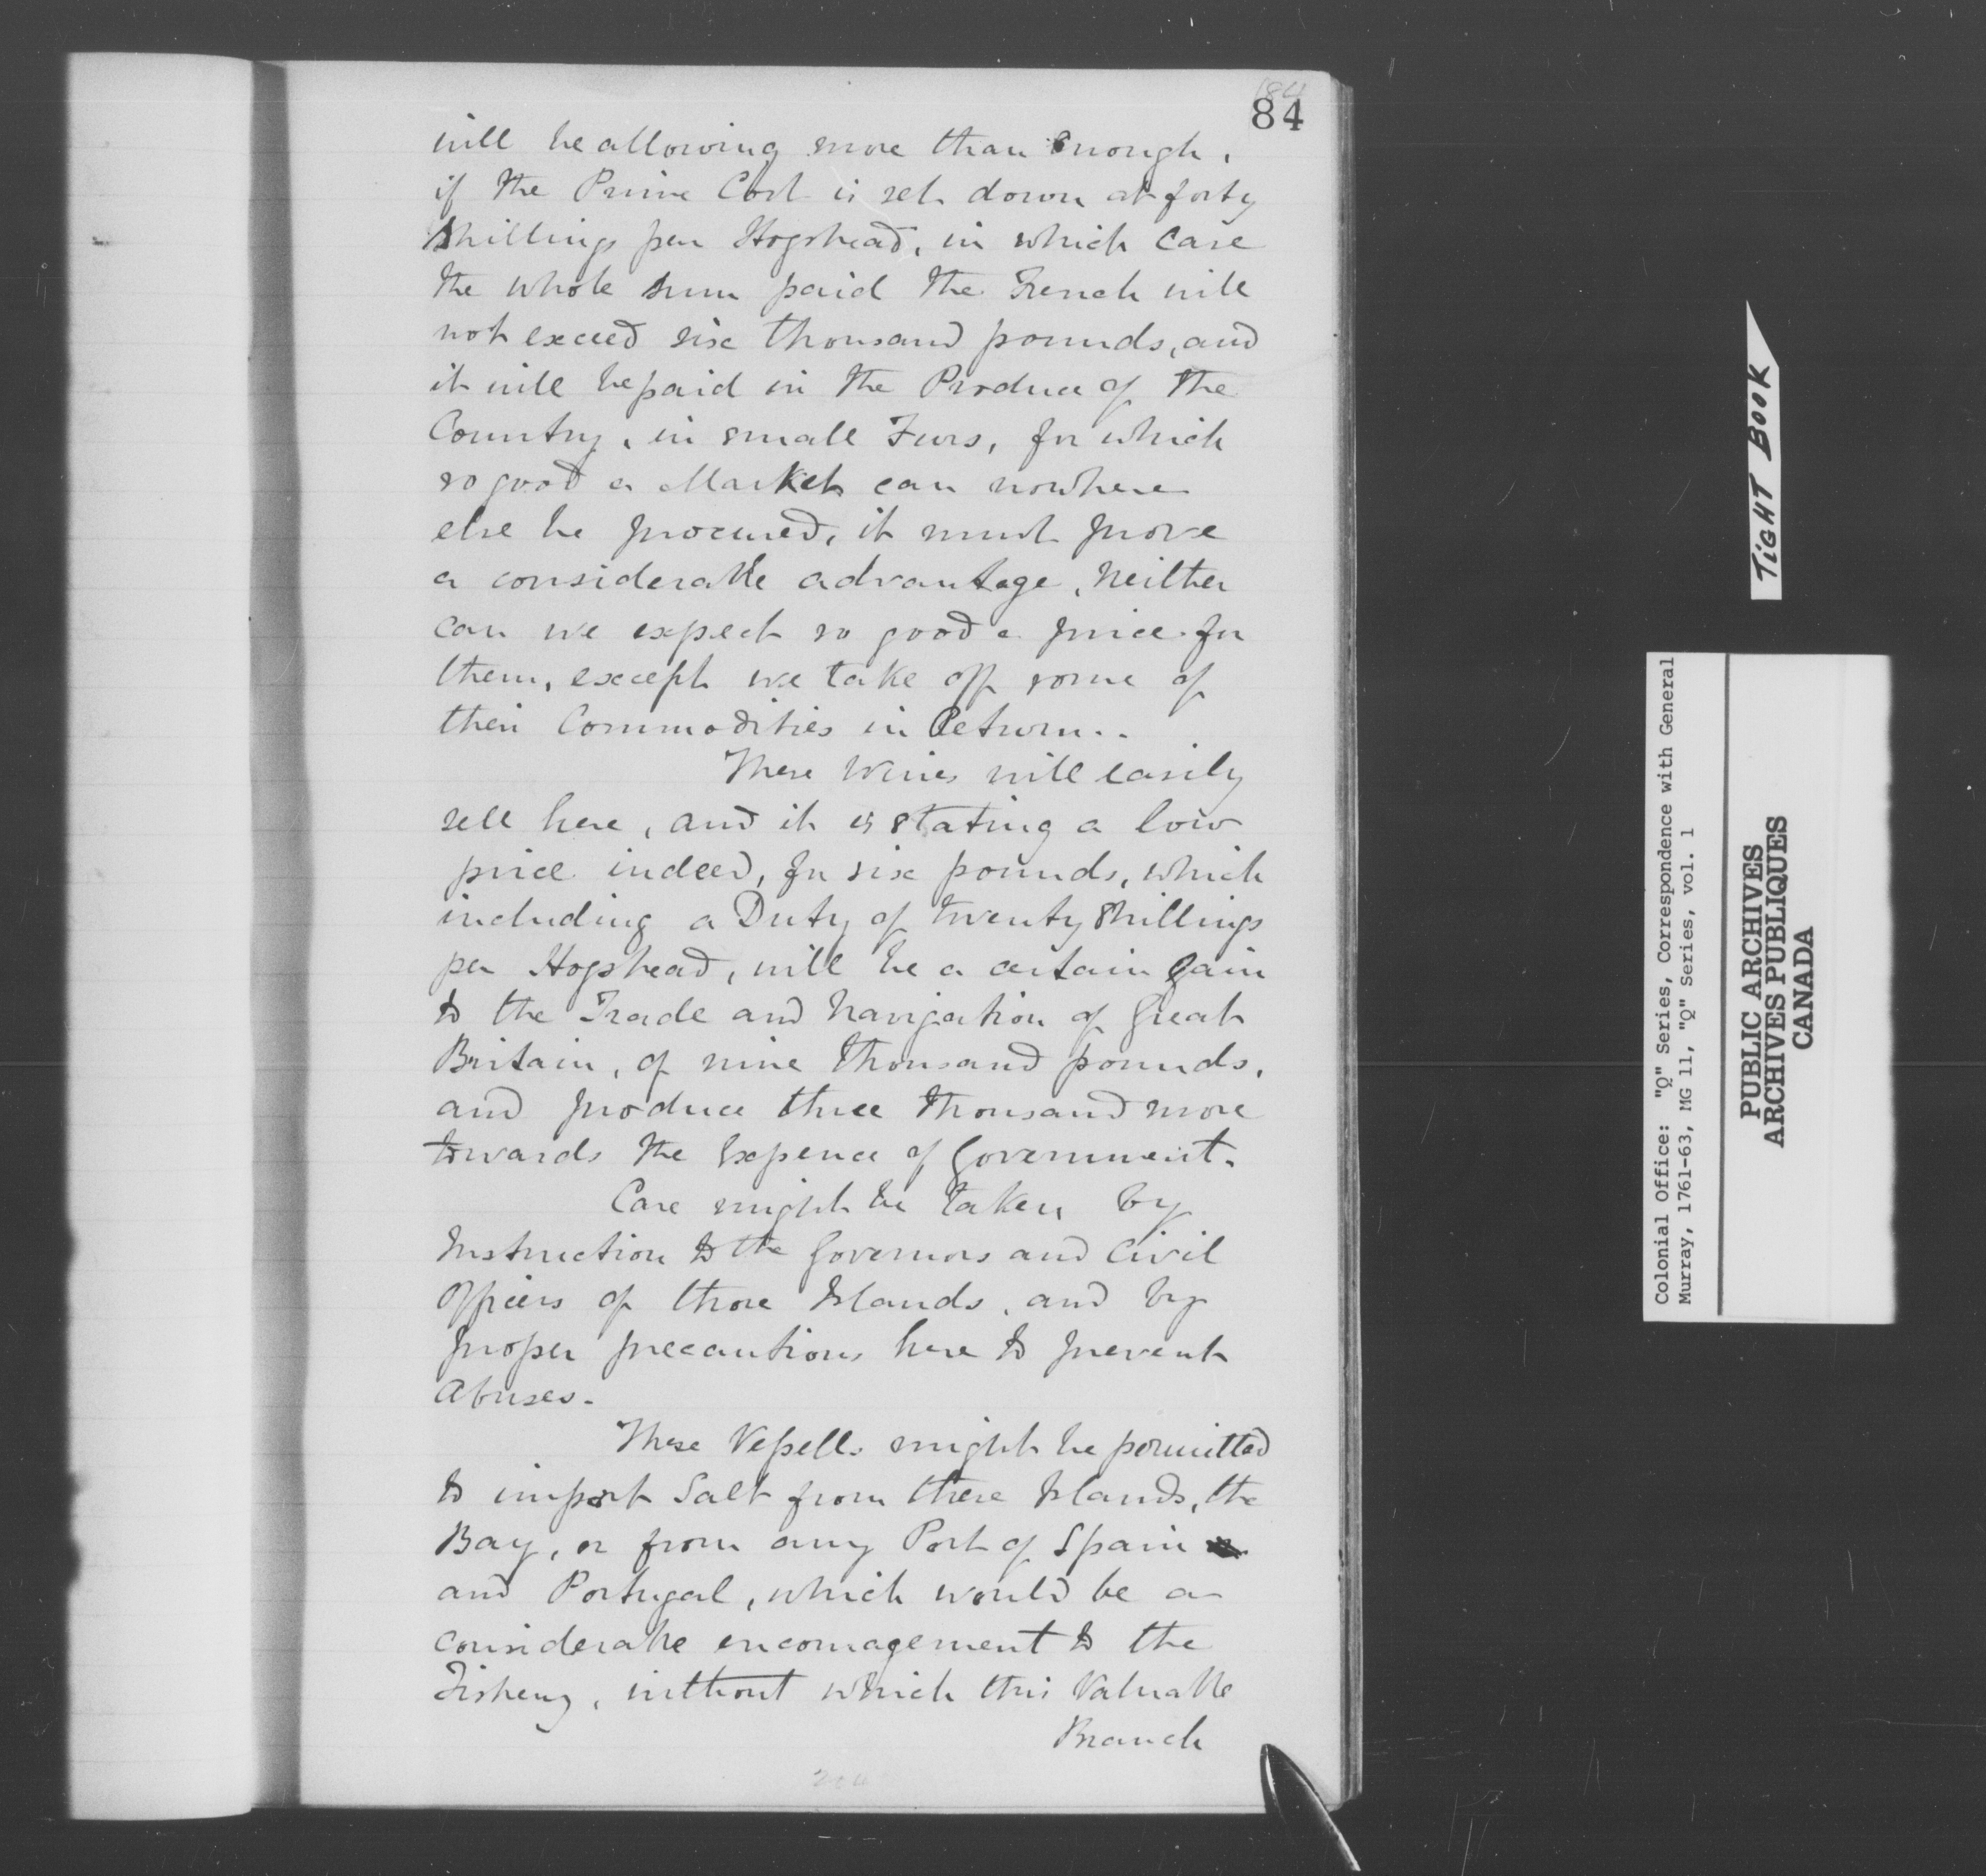 184
84
will be allowing more than enough,
if the Prime Cost is set down at forty
Shillings per Hogshead, in which Case
the whole Sum paid the French will
not exceed six thousand pounds, and
it will be paid in the Produce of the
Country, in small Furs, for which
so good a Market can nowhere
else be procured, it must prove
a considerable advantage, Neither
can we expect so good a price for
them, except we take off some of
their Commodities in Return..
These Wines will easily
sell here, and it is stating a low
price indeed, for six pounds, which
including a Duty of twenty Shillings
per Hogshead, will be a certain Gain
to the Trade and Navigation of Great
Britain, of nine thousand pounds,
and produce three thousand more
towards the Expence of Government.
Care might be taken by
Instruction to the Governors and Civil
Officers of those Islands, and by
proper precautions here to prevent
Abuses.
These Vessells might be permitted
to import Salt from these Islands, the
Bay, or from any Port of Spain
and Portugal, which would be a
considerable encouragement to the
Fishery, without which this Valuable
Branch
TIGHT BOOK
Colonial Office: "Q" Series, Correspondence with General
Murray, 1761-63, MG 11, "Q" Series, vol. 1
PUBLIC ARCHIVES
ARCHIVES PUBLIQUES
CANADA